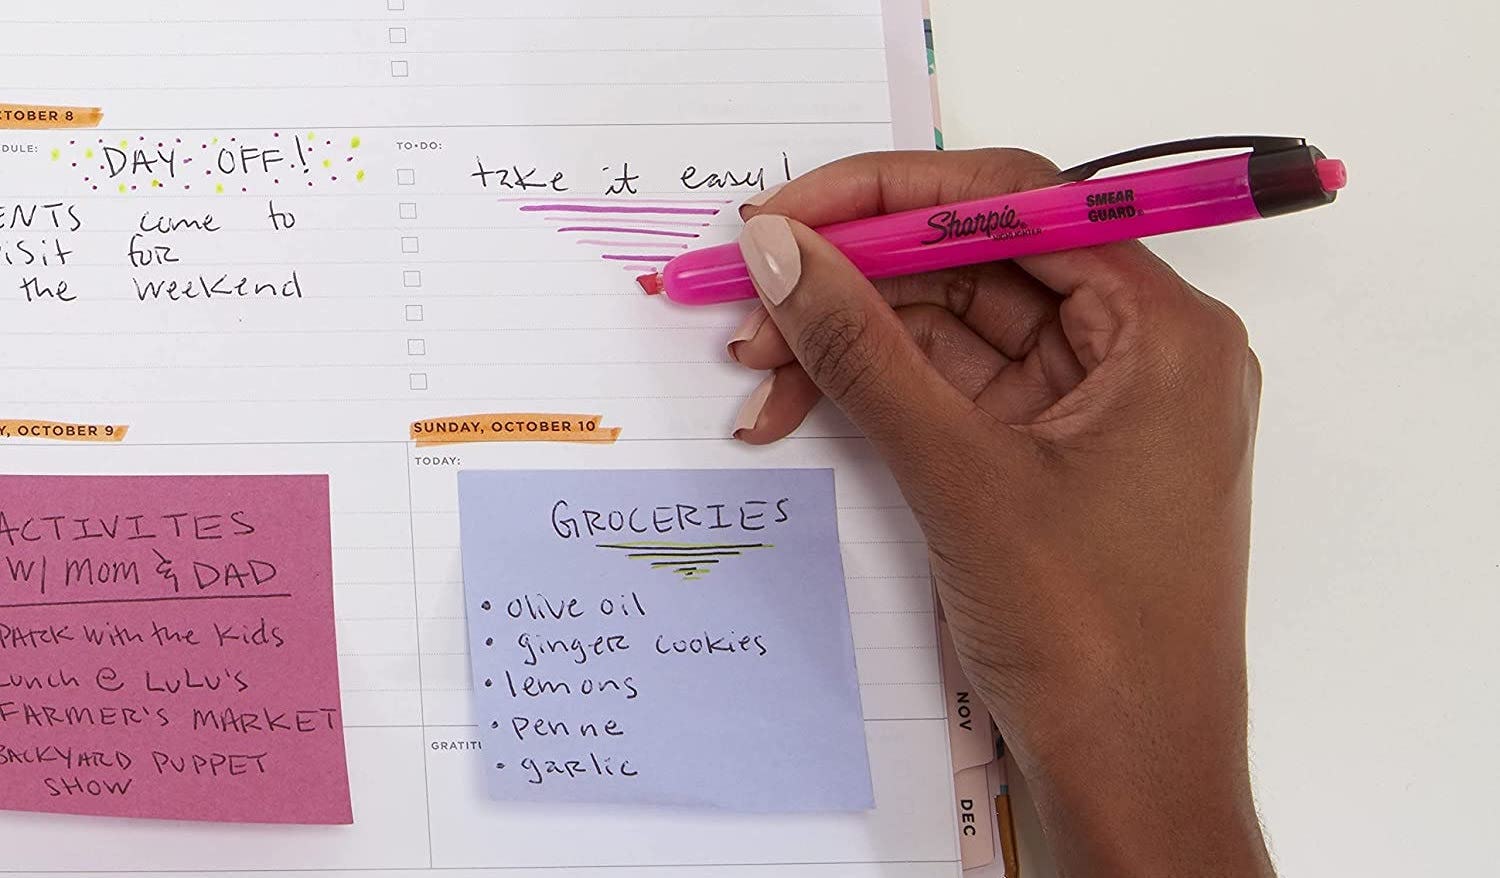 CTOBER 8
DULE:
DAY OFF!
ENTS come to
isit for
the weekend
TO•DO:
take it easy!
Sharpie®
HIGHLIGHTER
SMEAR
GUARD®
Y, OCTOBER 9
ACTIVITES
W/ Mom & DAD
PARK with the kids
Lunch @ LuLu's
FARMER'S MARKET
BACKYARD PUPPET
SHOW
SUNDAY, OCTOBER 10
TODAY:
GROCERIES
• olive oil
• ginger cookies
• lemons
• penne
• garlic
GRATITU
NOV
DEC